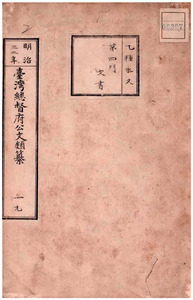 乙種永久
第四門
文書
明治
三二年
臺灣總督府公文類纂
一九